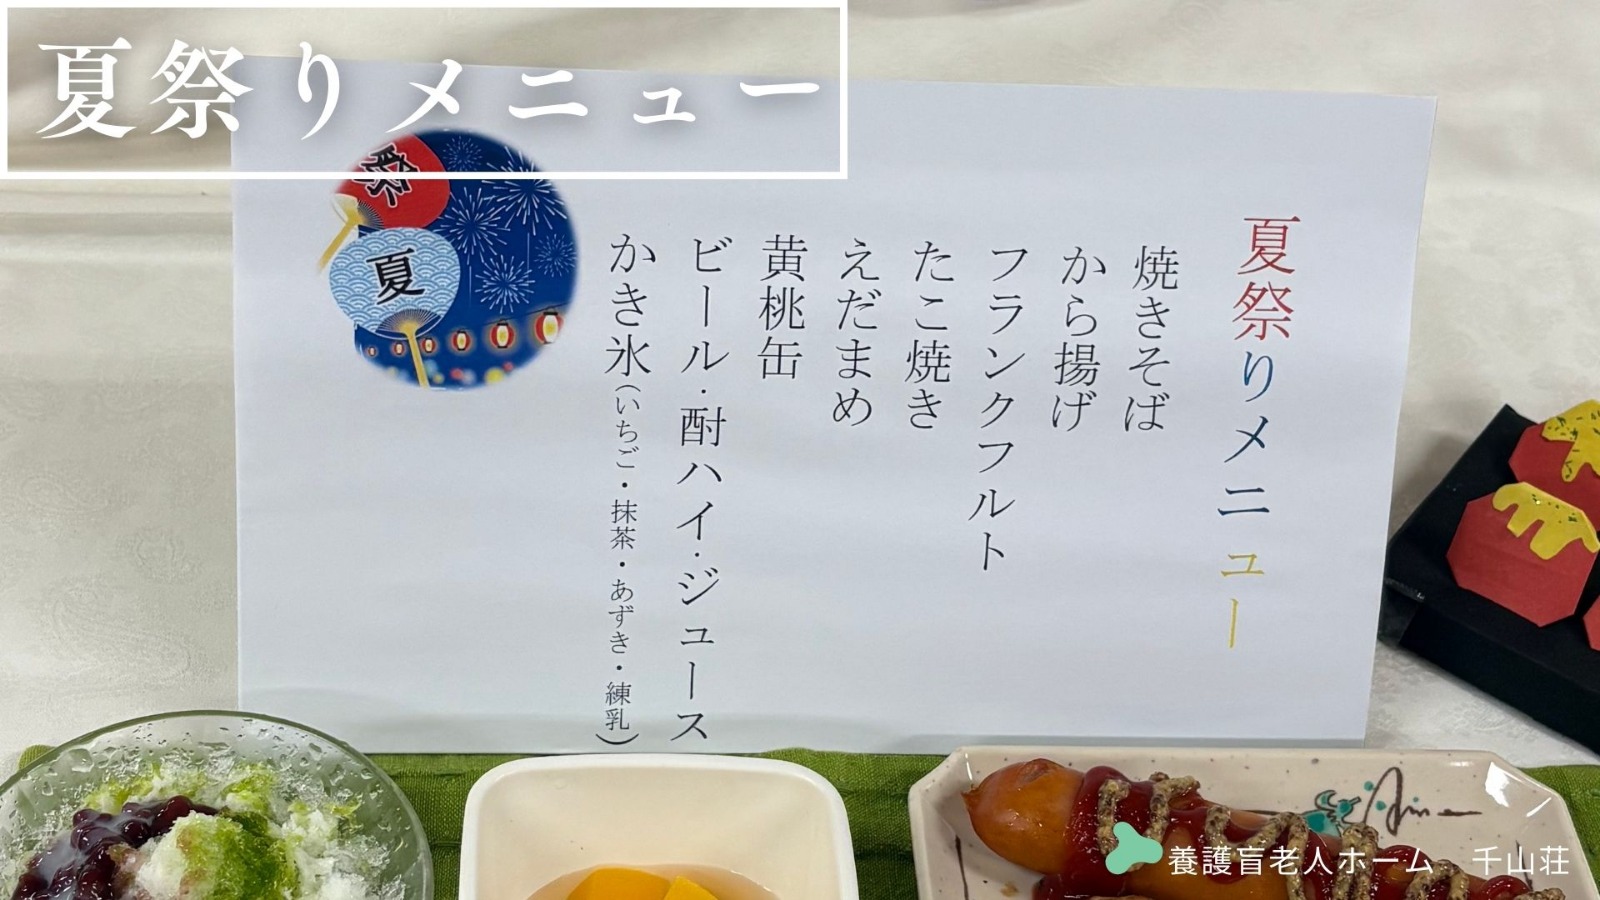 夏祭りメニュー
祭
夏
夏祭りメニュー
焼きそば
から揚げ
フランクフルト
たこ焼き
えだまめ
黄桃缶
ビール・酎ハイ・ジュース
かき氷(いちご・抹茶・あずき・練乳)
養護盲老人ホーム 千山荘